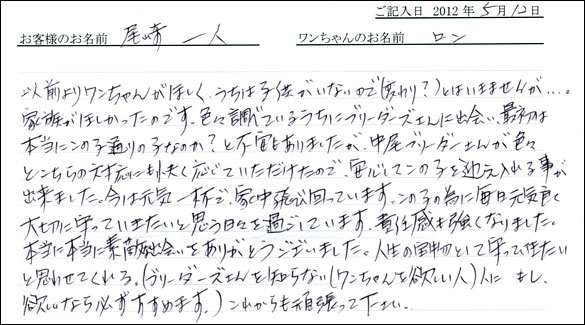 ご記入日 2012年5月12日
お客様のお名前 尾崎 一人 ワンちゃんのお名前 ロン
以前よりワンちゃんがほしく、うちは子供がいないので(変わり?)とはいきませんが….
家族がほしかったのです。色々調べているうちにブリーダーズさんに出会い、最初は
本当にこの子通りの子なのか?と不安もありましたが、中尾ブリーダーさんが色々
とこちらの対応にも丈夫く応じていただけたので、安心してこの子を迎え入れる事が
出来ました。今は元気一杯で、家中飛び回っています。この子の為に毎日元気良く
大切に守っていきたいと思う日々を過ごしています。責任感も強くなりました。
本当に本当に素敵な出会いをありがとうございました。人生の宝物として守って行きたい
と思わせてくれる。(ブリーダーズさんを知らない(ワンちゃんを欲しい人)人に もし、
欲しいなら必ずすすめます。) これからも頑張って下さい。